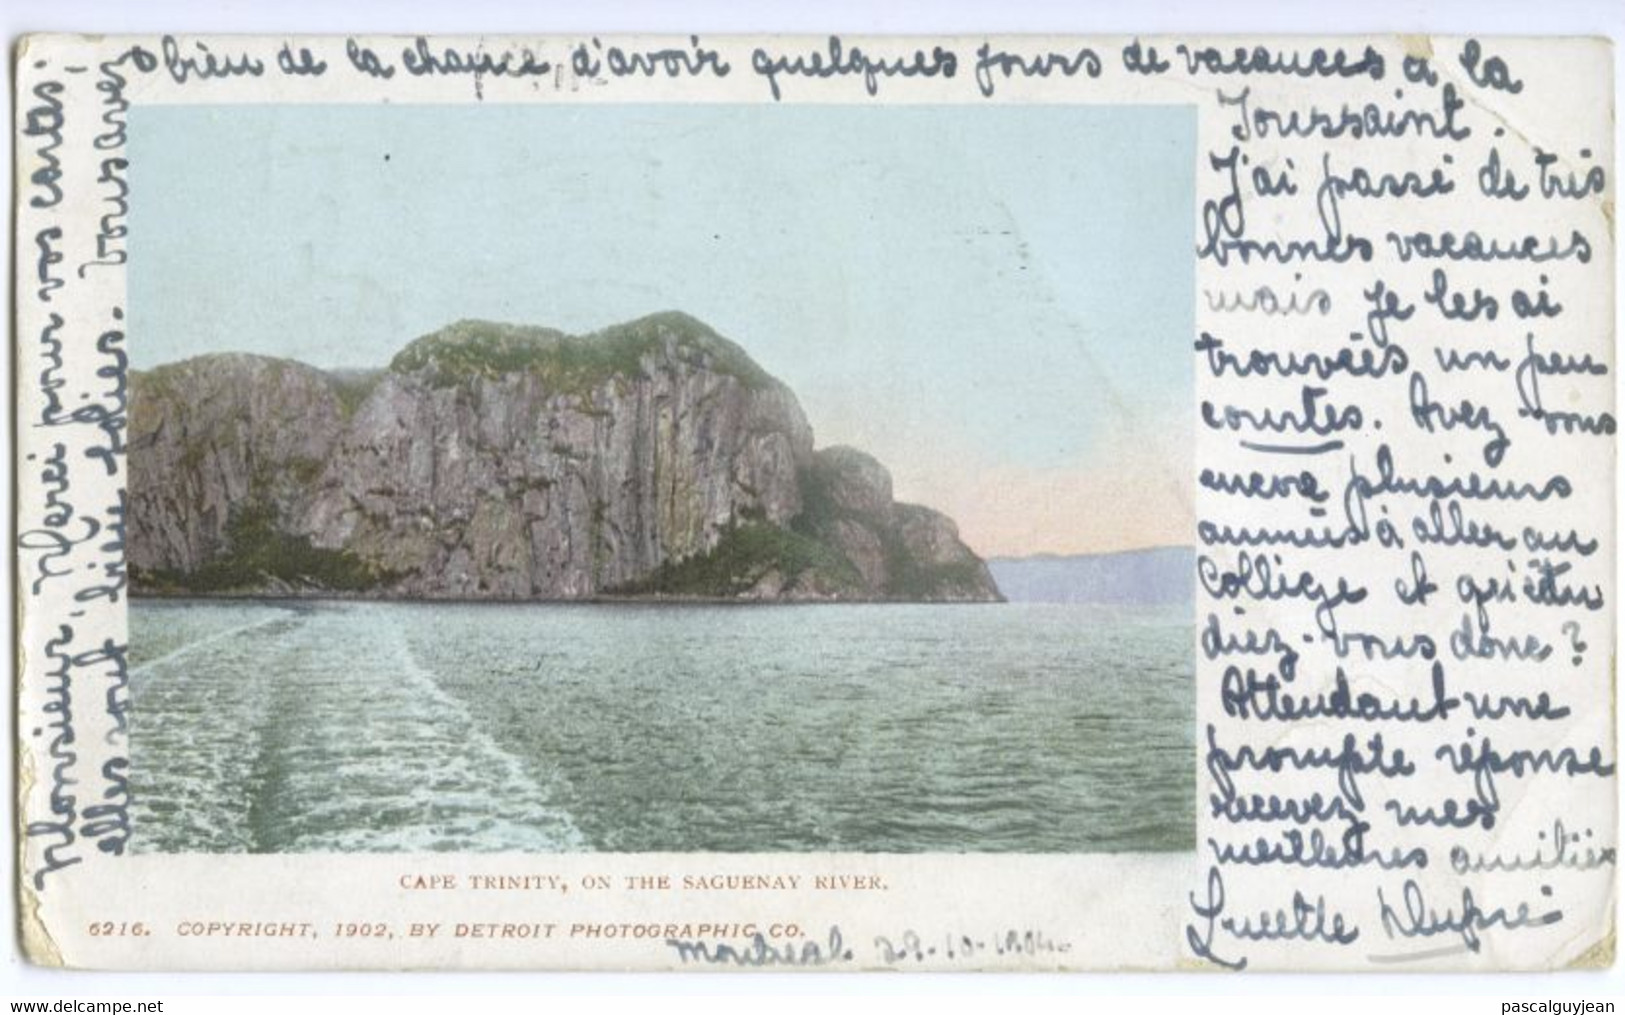 Monsieur, Merci pour vos cartes;
elles sont bien jolies. Vous avez
bien de la chance, d'avoir quelques jours de vacances à la
Toussaint.
J'ai passé de très
bonnes vacances
mais je les ai
trouvées un peu
courtes. Avez-vous
encore plusieurs
années à aller au
Collège et qu'étu
diez-vous donc?
Attendant une
prompte réponse
recevez mes
meilleures amitiés
Lucette Dupré
CAPE TRINITY, ON THE SAGUENAY RIVER.
6216. COPYRIGHT, 1902, BY DETROIT PHOTOGRAPHIC CO.
Montreal 29-10-1904
pascalguyjean